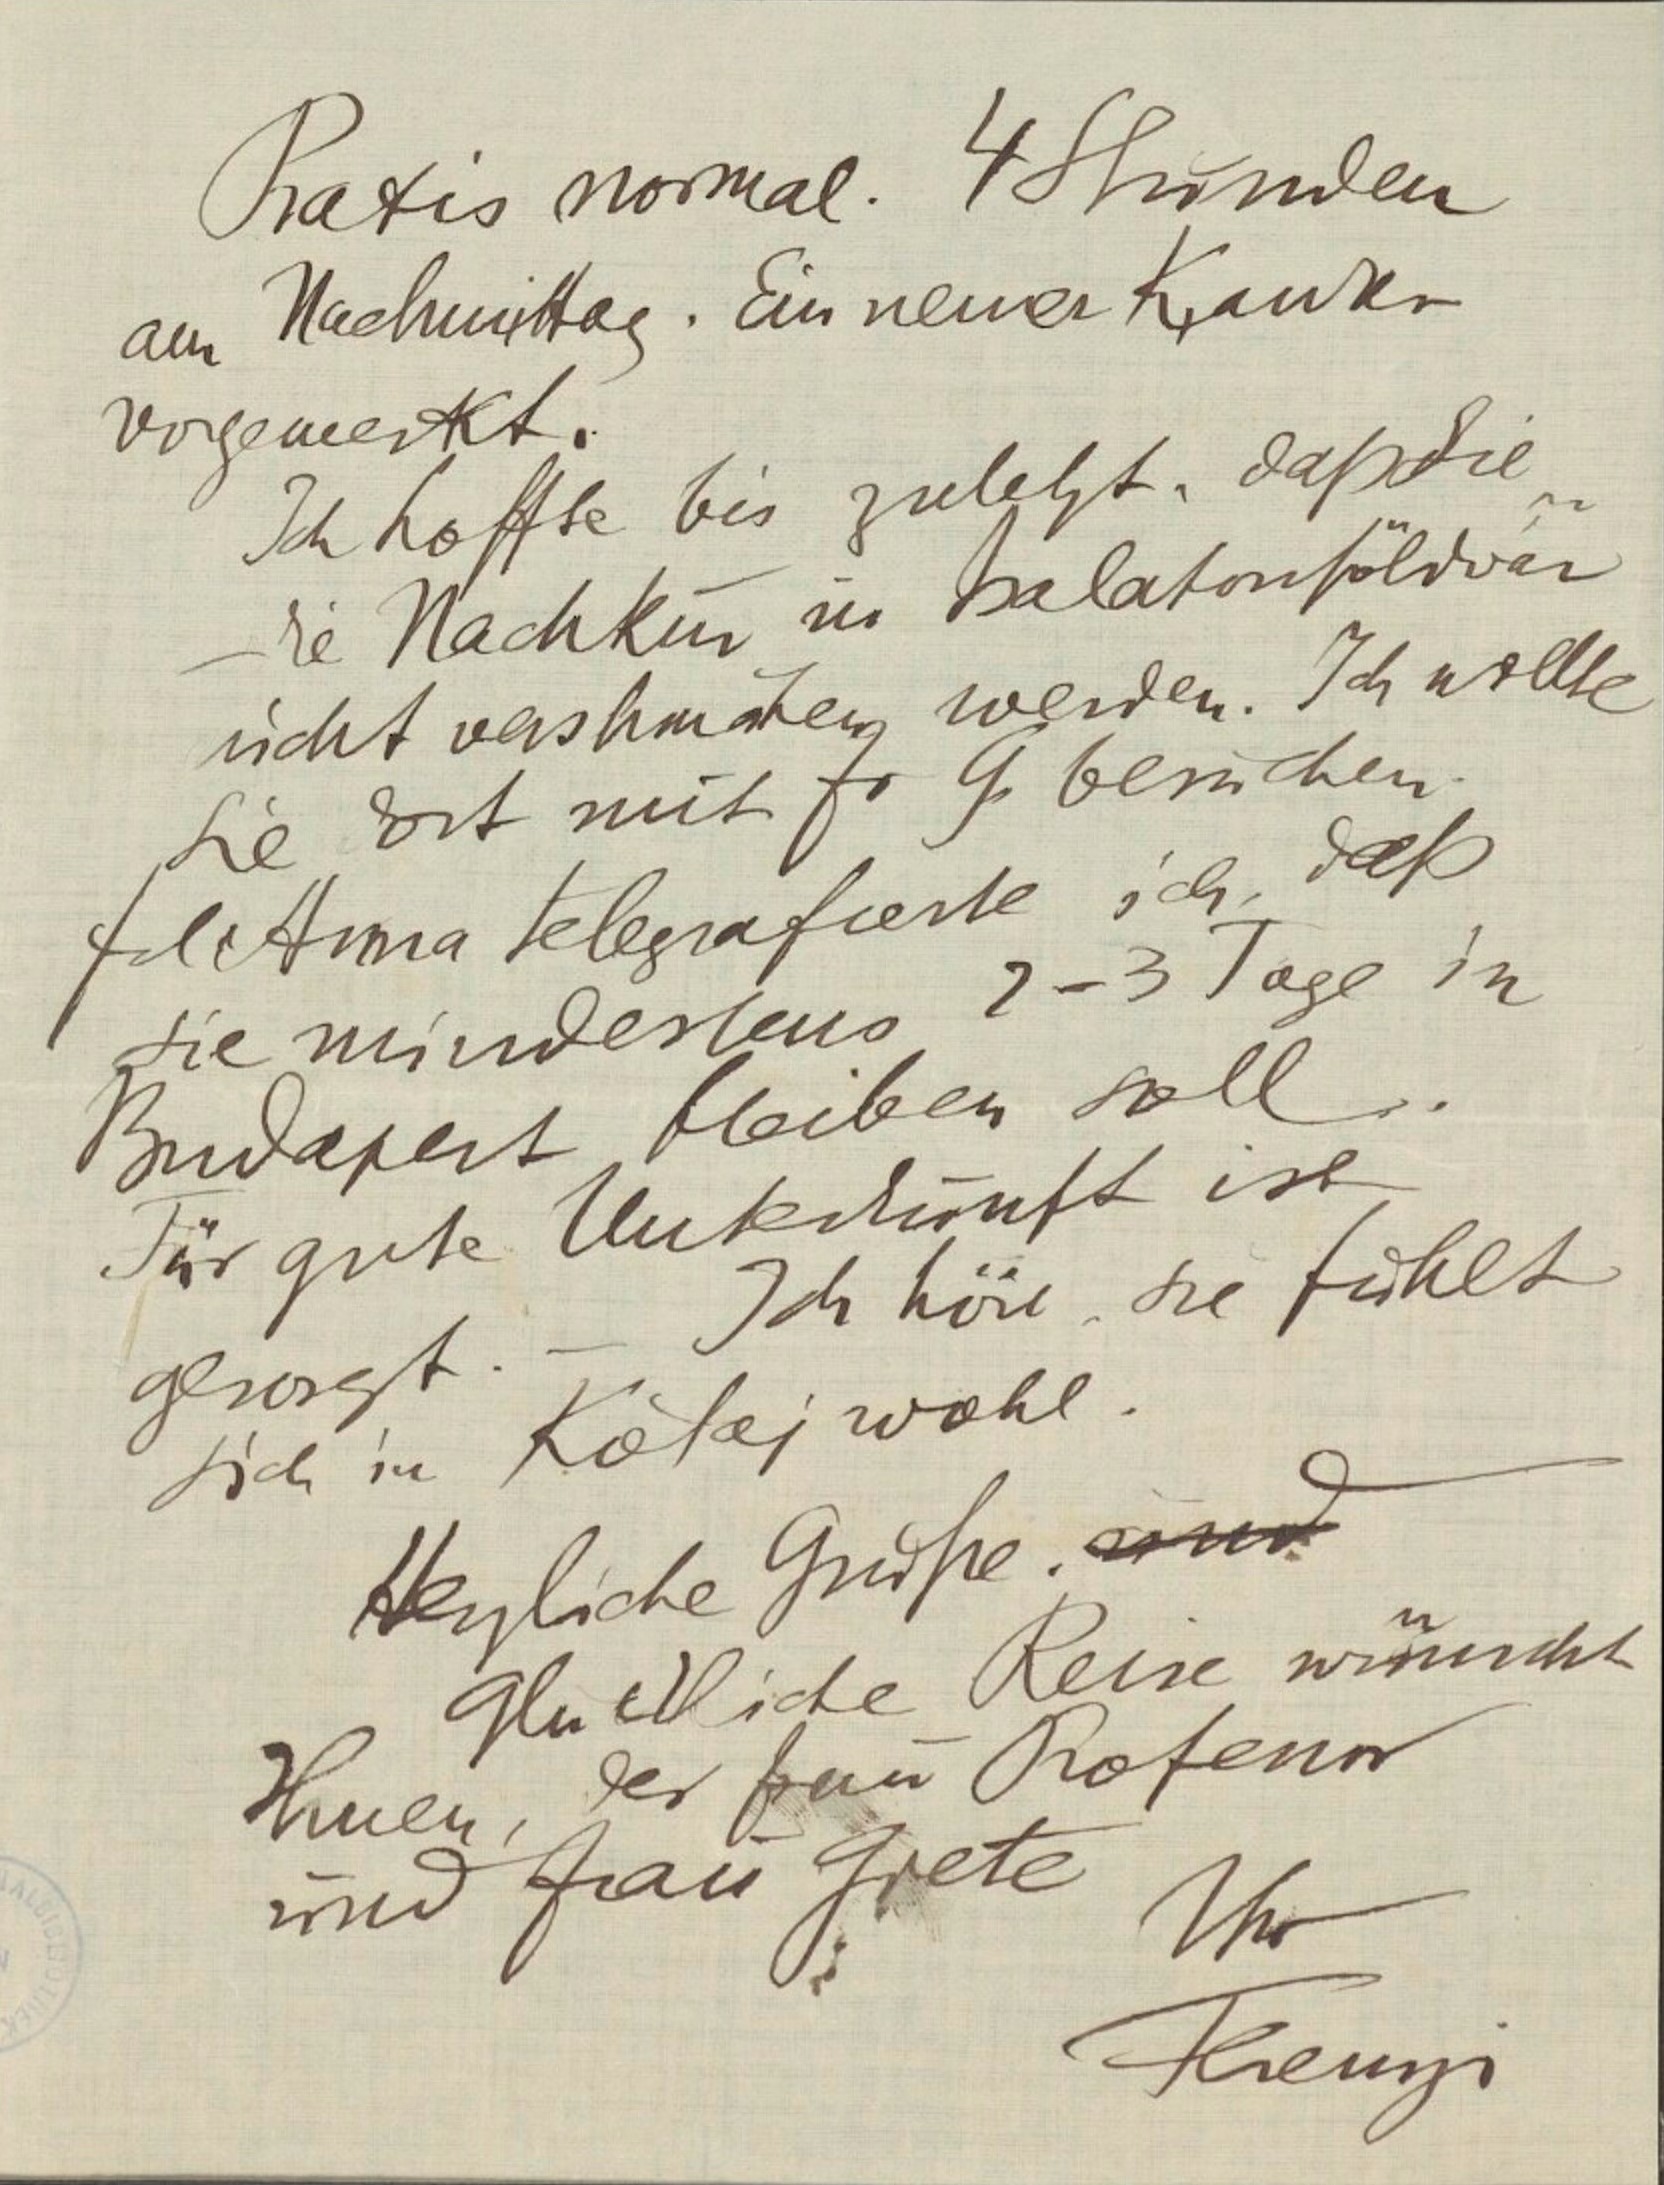 Praxis normal. 4 Stunden
am Nachmittag. Ein neuer Kranker
vorgemerkt.
Ich hoffte bis zuletzt, daß Sie
die Nachkur in Balatonföldvár
nicht verschmähen werden. Ich wollte
Sie dort mit Fr G. besuchen.
Frl. Anna telegrafierte ich, daß
sie mindestens 2–3 Tage in
Budapest bleiben soll.
Für gute Unterkunft ist
gesorgt. – Ich höre, sie fühlt
sich in Kótaj wohl.
Herzliche Grüße. und
Glückliche Reise wünscht
Ihnen, der Frau Professor
und Frau Grete
Ihr
Ferenczi